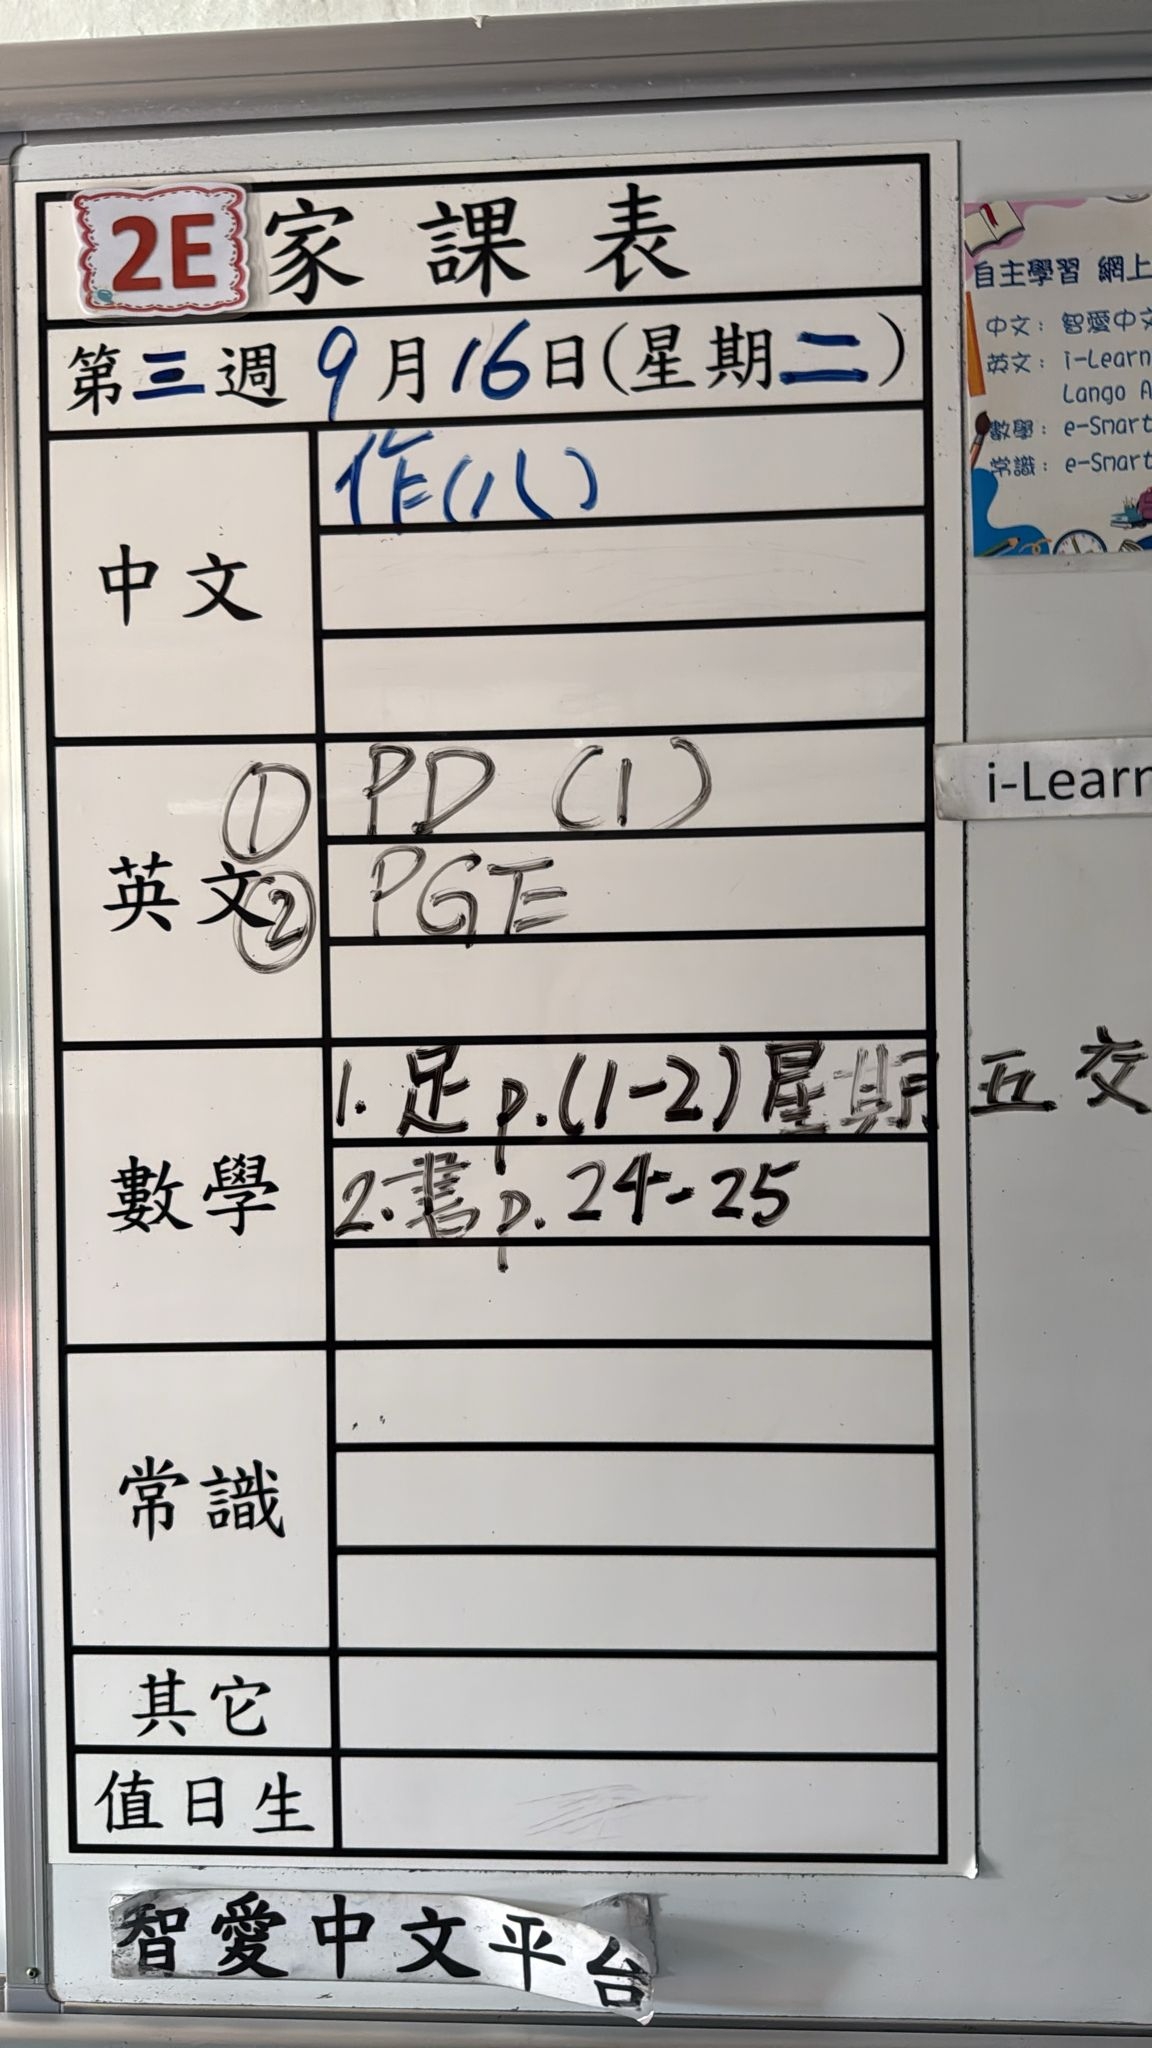 2E 家課表
第三週 9月16日(星期二)
中文
作(八)
英文
① PD (1)
② PGE
數學
1. 足 p.(1-2) 星期五交
2. 書 p. 24-25
常識
其它
值日生
智愛中文平台
自主學習 網上
中文: 智愛中文
英文: i-Learn
Lango A
數學: e-Smart
常識: e-Smart
i-Learn